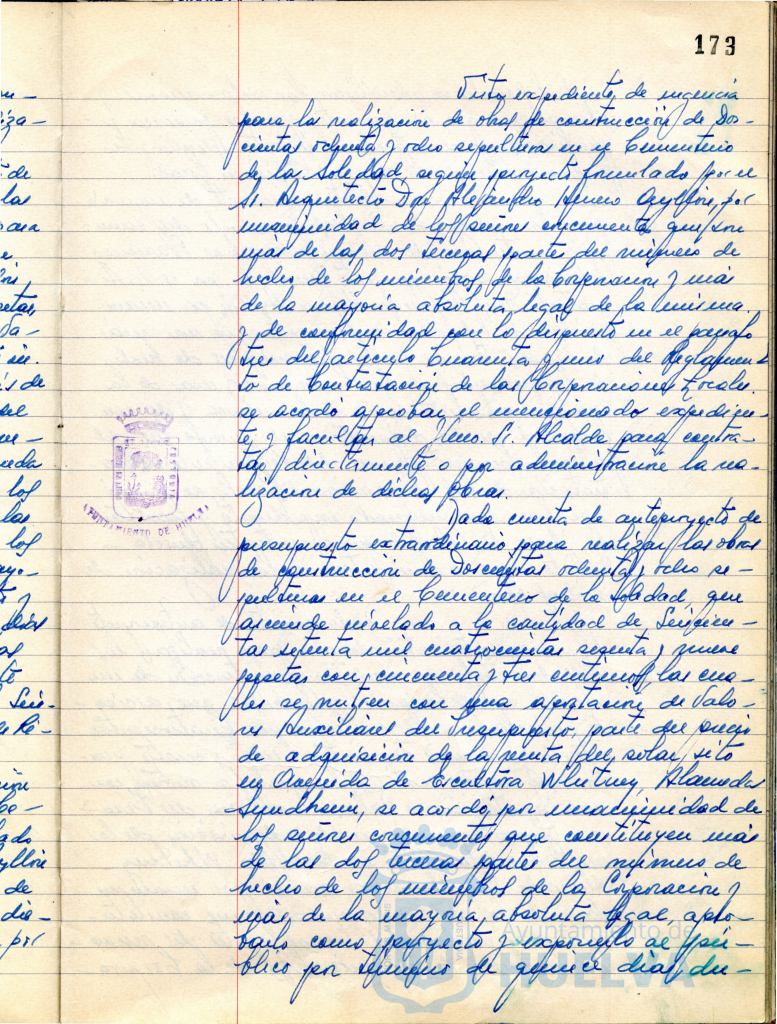 173
Visto expediente, de urgencia
para la realización de obras de construcción de Dos-
cientas ochenta y ocho sepulturas en el Cementerio
de la Soledad, según proyecto formulado por el
Sr. Arquitecto Don Alejandro Herrero Ayllón, por
unanimidad de los señores concurrentes que son
más de las dos terceras partes del número de
hecho de los miembros de la Corporación y más
de la mayoría absoluta legal de la misma
y de conformidad con lo dispuesto en el párrafo
tres del artículo Cuarenta y uno del Reglamen-
to de Contratación de las Corporaciones Locales.
se acordó aprobar el mencionado expedien-
te y facultar al Iltmo. Sr. Alcalde para contra-
tar directamente o por administración la rea-
lización de dichas obras.
Dada cuenta de anteproyecto de
presupuesto extraordinario para realizar las obras
de construcción de Doscientas ochenta y ocho se-
pulturas en el Cementerio de la Soledad, que
asciende nivelado a la cantidad de Seiscien-
tas setenta mil cuatrocientas sesenta y nueve
pesetas con cincuenta y tres centimos, las cua-
les se nutren con una aportación de Valo-
res Auxiliares del Presupuesto, parte del precio
de adquisición de la venta del solar sito
en Avenida de Escultora Whitney, Alameda
Sundheim, se acordó, por unanimidad de
los señores concurrentes que constituyen más
de las dos terceras partes del número de
hecho de los miembros de la Corporación y
más de la mayoría absoluta legal, apro-
barlo como proyecto y exponerlo al pú-
blico por término de quince días, du-
AYUNTAMIENTO DE HUELVA
Ayuntamiento de
HUELVA